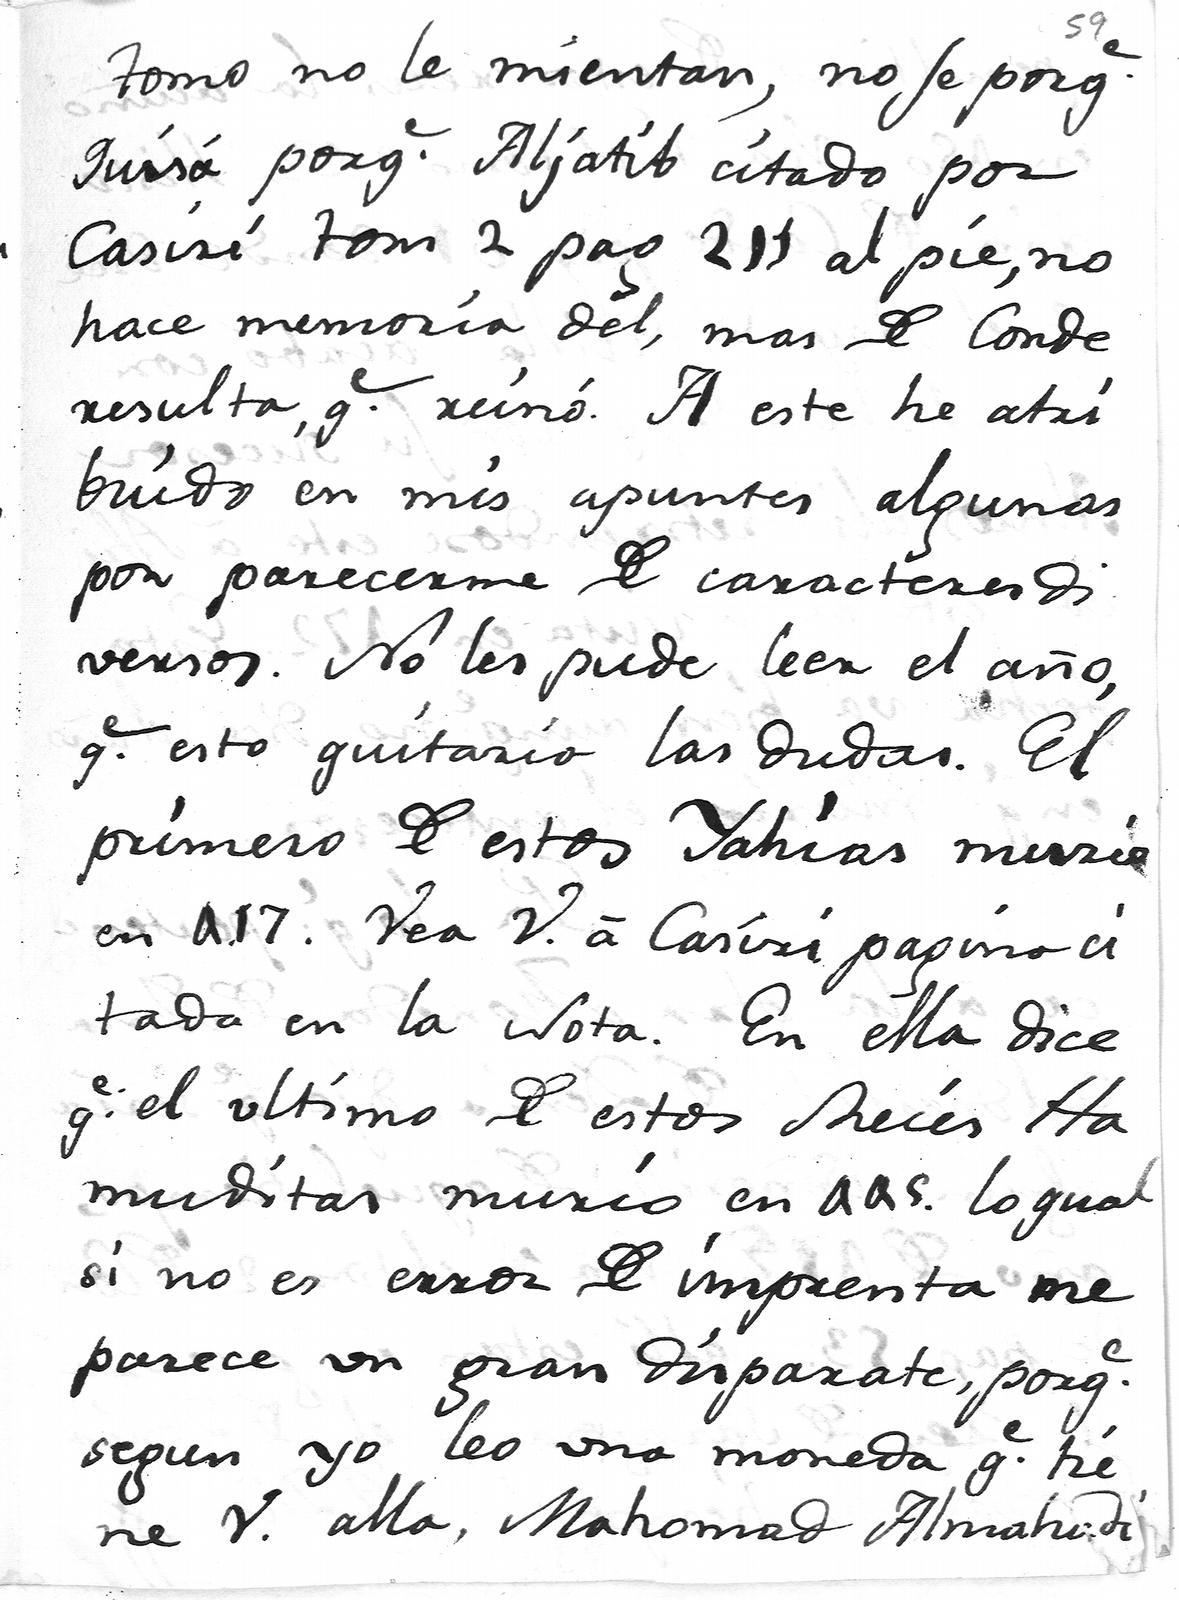 59
tomo no le mientan, no se porq.e
Quisá porq.e Aljatib citado por
Casiri tom 2 pag 211 al pie, no
hace memoria dél, mas de Conde
resulta, q.e reinó. A este he atri
buido en mis apuntes algunas
por parecerme de caracteres di
versos. No les pude leer el año,
q.e esto quitaria las dudas. El
primero de estos Yahias murió
en 417. Vea V. à Casiri pagina ci
tada en la Nota. En élla dice
q.e el ultimo de estos Reies Ha
muditas murió en 445. lo qual
si no es error de imprenta me
parece un gran disparate, porq.e
segun yo leo una moneda q.e tie
ne V. alla, Mahomad Almahudi